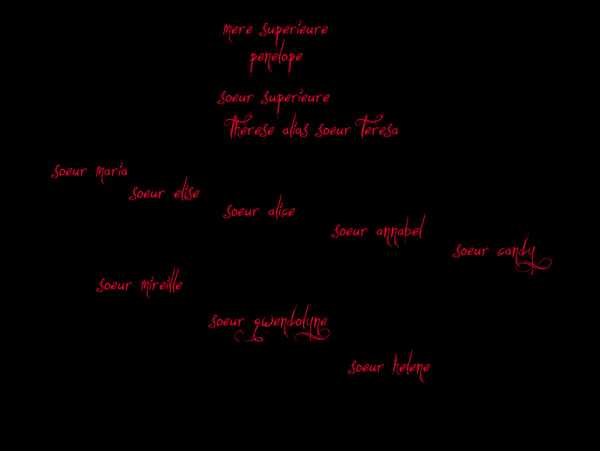 mere superieure
penelope
soeur superieure
Therese alias soeur Teresa
soeur maria
soeur elise
soeur alice
soeur annabel
soeur candy
soeur mireille
soeur gwendolyne
soeur helene